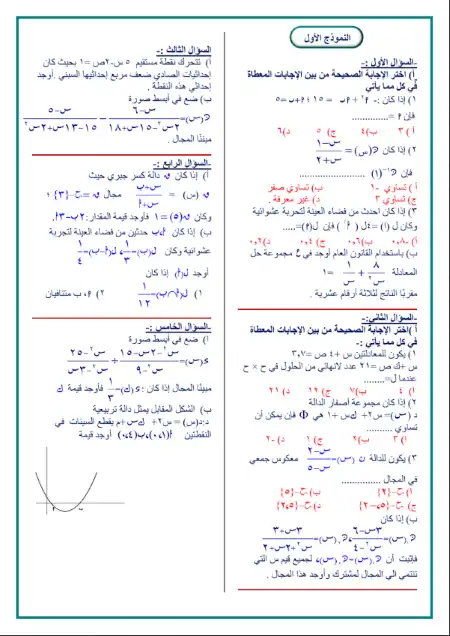 النموذج الأول
-السؤال الأول :-
أ) اختر الإجابة الصحيحة من بين الإجابات المعطاة
في كل مما يأتي
١) إذا كان :- م٢ + م ب = ١٥ ، م + ب = ٥
فإن م = ..............
أ) ٣ ب) ٤ ج) ٥ د) ٦
٢) إذا كان ن(س) = س−١ / س+٢
فإن ن−١(١) .........................
أ) تساوي −١ ب) تساوي صفر
ج) تساوي ٣ د) غير معرفة .
٣) إذا كان احدث من فضاء العينة لتجربة عشوائية
وكان ل(أ) = ٤ل(أ) فإن ل(أ) = .....
أ) ٠,٨ ب) ٠,٦ ج) ٠,٤ د) ٠,٢
ب) باستخدام القانون العام أوجد في ح مجموعة حل
المعادلة ٨ / س٢ + ١ / س = ١
مقربًا الناتج لثلاثة أرقام عشرية .
-السؤال الثاني:-
أ) اختر الإجابة الصحيحة من بين الإجابات المعطاة
في كل مما يأتي:-
١) يكون للمعادلتين س + ٤ ص = ٧ ، ٣
س + ك ص = ٢١ عدد لانهائي من الحلول في ح × ح
عندما ك = ........
أ) ٤ ب) ٧ ج) ١٢ د) ٢١
٢) إذا كان مجموعة أصفار الدالة
د (س) = س٢ + ك س + ١ هي Φ فإن يمكن أن
تساوي ..........
أ) ٣ ب) ٢ ج) ١ د) −٢
٣) يكون للدالة ن (س) = س−٢ / س−٥ معكوس جمعي
في المجال ...............
أ) ح−{٢} ب) ح−{٥}
ج) ح−{٥، −٢} د) ح−{٢،٥}
ب) إذا كان
ن١(س) = ٣س−٦ / س٢−٤ ، ن٢(س) = ٣س+٣ / س٢+س٢+٢
فإثبت أن ن١(س) = ن٢(س)، لجميع قيم س التي
تنتمي الي المجال لمشترك وأوجد هذا المجال .
السؤال الثالث :-
أ) تتحرك نقطة مستقيم ٥ س−٢ص = ١ بحيث كان
إحداثيات الصادي ضعف مربع إحداثيها السيني .أوجد
إحداثي هذه النقطة .
ب) ضع في أبسط صورة
ن(س) = س−٦ / ٢س٢−١٥س+١٨ − س−٥ / ١٥−١٣س+٢س٢
مبينًا المجال .
-السؤال الرابع :-
أ) إذا كان ن دالة كسر جبري حيث
ن (س) = س+ب / س+أ مجال ن = ح−{٣}
وكان ن(٥) = ١ فأوجد قيمة المقدار: ٢ب−٣أ.
ب) إذا كان أ،ب حدثين من فضاء العينة لتجربة
عشوائية وكان ل(ب) = ١/٣ ، ل(أ) = ١/٤
أوجد ل(أ) إذا كان
١) ل(أ∩ب) = ١/١٢ ٢) أ، ب متنافيان
-السؤال الخامس :-
أ) ضع في أبسط صورة
د(س) = س٢−٢س−١٥ / س٢−٩ ÷ ٢س−٢٥ / س٢−٣س
مبينًا المجال إذا كان : د(ك) = ١/٣ فأوجد قيمة ك
ب) الشكل المقابل يمثل دالة تربيعية
د:د(س) = س٢ + ك س + م يقطع السينات في
النقطتين أ(٠،١)، ب(٠،٤) أوجد قيمة